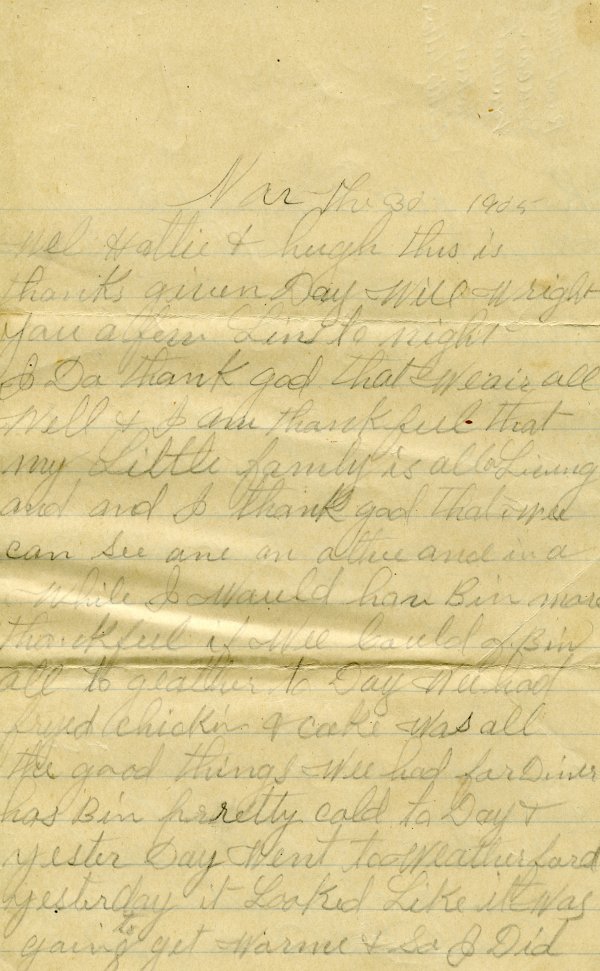 Nov the 30 1905
Wel Hattie & hugh this is
thanks given Day Will Wright
you a few Lins to night
I Do thank god that We air all
Well & I am thankfeul that
my Little family is all Living
and and I thank god that wee
can See one an other and in a
While I Would hav Bin more
thankfeul if Wee Could of Bin
all to geather to Day Wee had
fryed chickin & cake Was all
the good things Wee had for Diner
has Bin prretty cold to Day &
yester Day Went to Weatherford
yesterday it Looked Like it Was
going to get Warme & So I Did